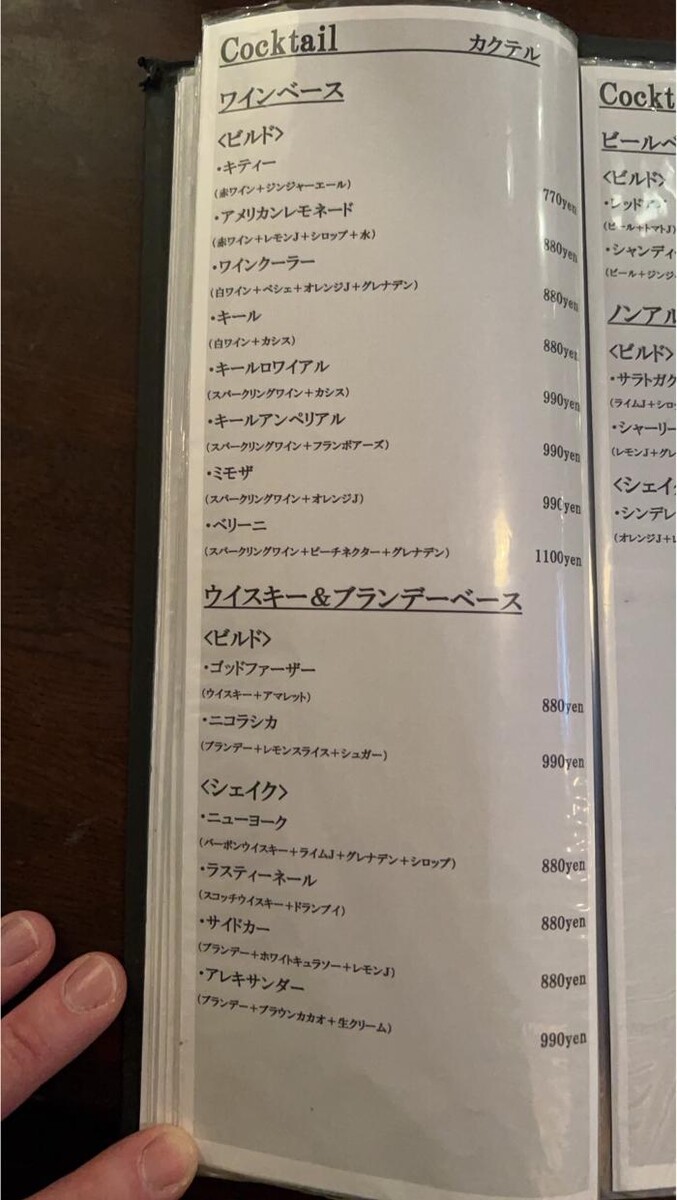 Cocktail カクテル
ワインベース
<ビルド>
・キティー
(赤ワイン+ジンジャーエール) 770yen
・アメリカンレモネード
(赤ワイン+レモンJ+シロップ+水) 880yen
・ワインクーラー
(白ワイン+ペシェ+オレンジJ+グレナデン) 880yen
・キール
(白ワイン+カシス) 880yen
・キールロワイアル
(スパークリングワイン+カシス) 990yen
・キールアンペリアル
(スパークリングワイン+フランボアーズ) 990yen
・ミモザ
(スパークリングワイン+オレンジJ) 990yen
・ベリーニ
(スパークリングワイン+ピーチネクター+グレナデン) 1100yen
ウイスキー&ブランデーベース
<ビルド>
・ゴッドファーザー
(ウイスキー+アマレット) 880yen
・ニコラシカ
(ブランデー+レモンスライス+シュガー) 990yen
<シェイク>
・ニューヨーク
(バーボンウイスキー+ライムJ+グレナデン+シロップ) 880yen
・ラスティーネール
(スコッチウイスキー+ドランブイ) 880yen
・サイドカー
(ブランデー+ホワイトキュラソー+レモンJ) 880yen
・アレキサンダー
(ブランデー+ブラウンカカオ+生クリーム) 990yen
Cockt
ビールベ
<ビルド>
・レッド
(ビール+トマトJ)
・シャンディ
(ビール+ジンジ
ノンアル
<ビルド>
・サラトガク
(ライムJ+シロ
・シャーリー
(レモンJ+グレ
<シェイク
・シンデレ
(オレンジJ+レ